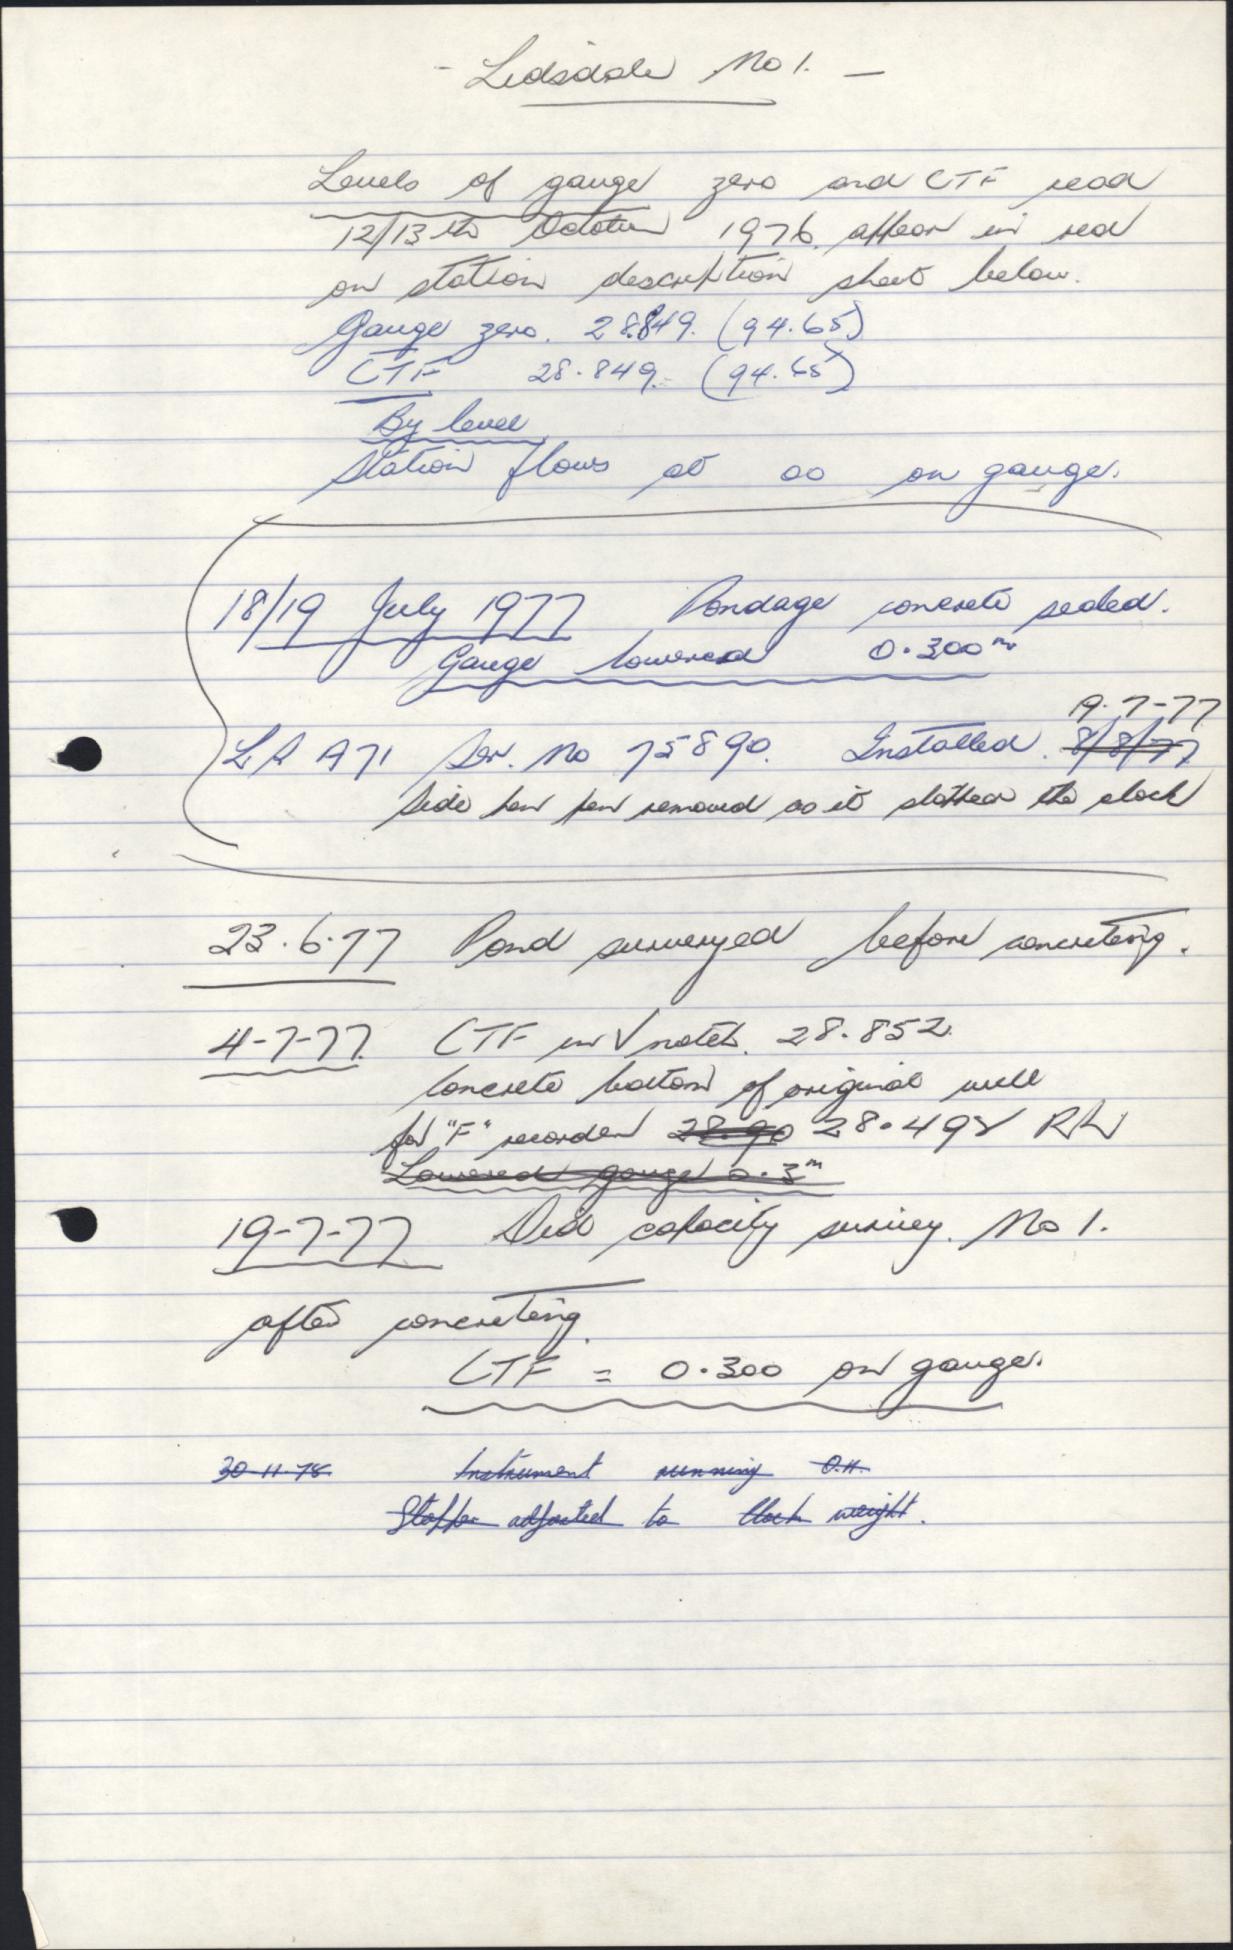 - Lidsdale No 1. -
Levels of gauge zero and CTF read
12/13 th October 1976 appear in red
on station description sheet below.
Gauge zero. 28.849. (94.65)
CTF 28.849. (94.65)
By level
Station flows at oo on gauge.
18/19 July 1977 Pondage concrete sealed.
Gauge lowered 0.300 m
19-7-77
L&S A71 Ser. No 75890. Installed. 8/8/77
Side pen removed as it stopped the clock
23.6.77 Pond surveyed before concreting.
4-7-77. CTF in V notch. 28.852.
Concrete bottom of original well
for "F" recorder 28.90 28.498 RL
Lowered gauge 0.3 m
19-7-77 Did capacity survey. No 1.
after concreting.
CTF = 0.300 on gauge.
30-11-78 Instrument running O.K.
Stopper adjusted to clock weight.